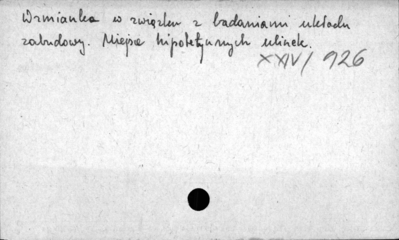 Wzmianka w związku z badaniami układu
zabudowy. Miejsce hipotetycznych uliczek.
XXIV/926